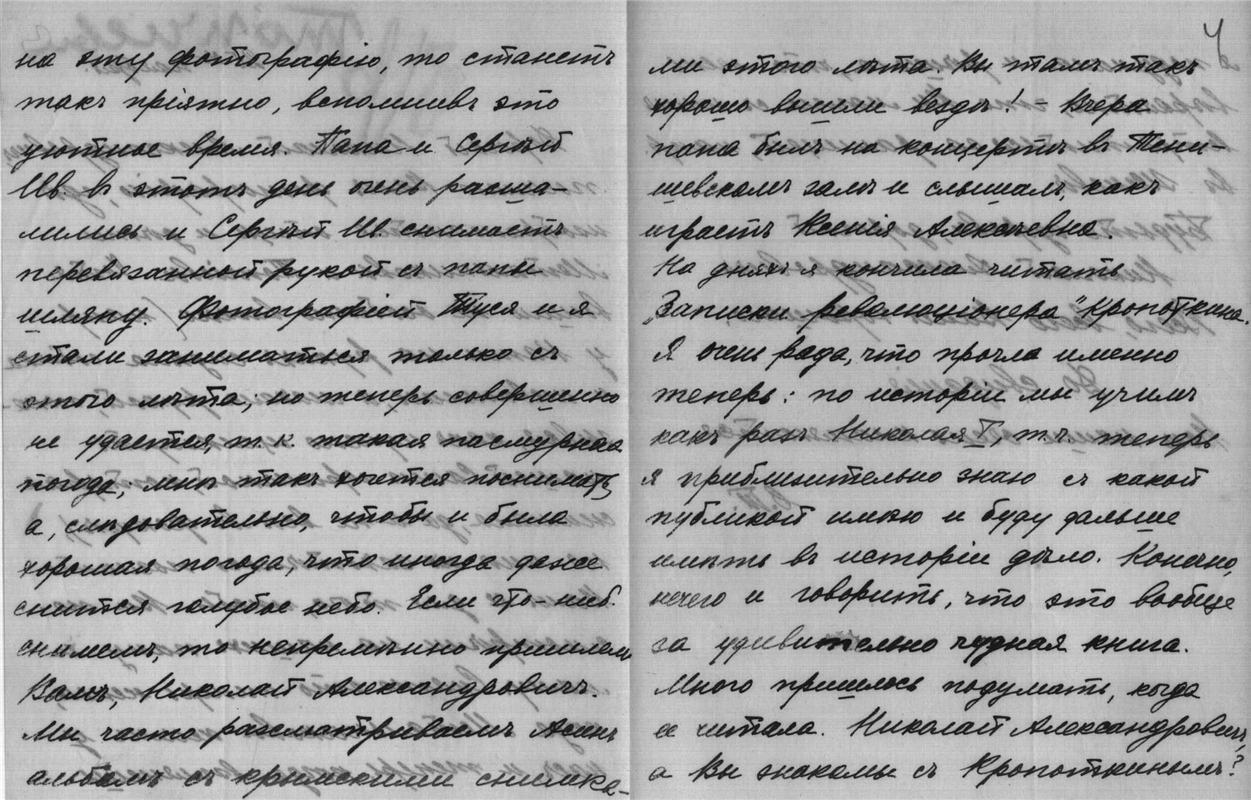 на эту фотографію, то станетъ
такъ пріятно, вспомнивъ это
уютное время. Папа и Сергѣй
Ив. въ этотъ день очень расша-
лились и Сергѣй Ив. снимаетъ
перевязанной рукой съ папы
шляпу. Фотографіей Туся и я
стали заниматься только съ
этого лѣта; но теперь совершенно
не удается, т. к. такая пасмурная
погода; мнѣ такъ хочется поснимать,
а, слѣдовательно, чтобы и была
хорошая погода, что иногда даже
снится голубое небо. Если что-ниб.
снимемъ, то непремѣнно пришлемъ
Вамъ, Николай Александровичъ.
Мы часто разсматриваемъ Асинъ
альбомъ съ крымскими снимка-
4
ми этого лѣта. Вы тамъ такъ
хорошо вышли вездѣ! – Вчера
папа былъ на концертѣ въ Тени-
шевскомъ залѣ и слышалъ, какъ
играетъ Ксенія Алексѣевна.
На дняхъ я кончила читать
„Записки революціонера" Кропоткина.
Я очень рада, что прочла именно
теперь: по исторіи мы учимъ
какъ разъ Николая I, т. ч. теперь
я приблизительно знаю съ какой
публикой имѣю и буду дальше
имѣть въ исторіи дѣло. Конечно,
нечего и говорить, что это вообще
за удивительно чудная книга.
Много пришлось подумать, когда
ее читала. Николай Александровичъ,
а Вы знакомы съ Кропоткинымъ?